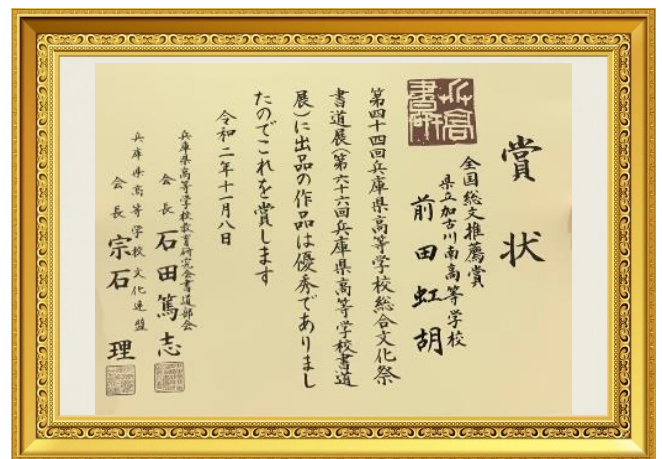 賞状
全国総文推薦賞
県立加古川南高等学校
前田虹胡
第四十四回兵庫県高等学校総合文化祭
書道展(第六十六回兵庫県高等学校書道
展)に出品の作品は優秀でありまし
たのでこれを賞します
令和二年十一月八日
兵庫県高等学校教育研究会書道部会
会長 石田篤志
兵庫県高等学校文化連盟
会長 宗石理